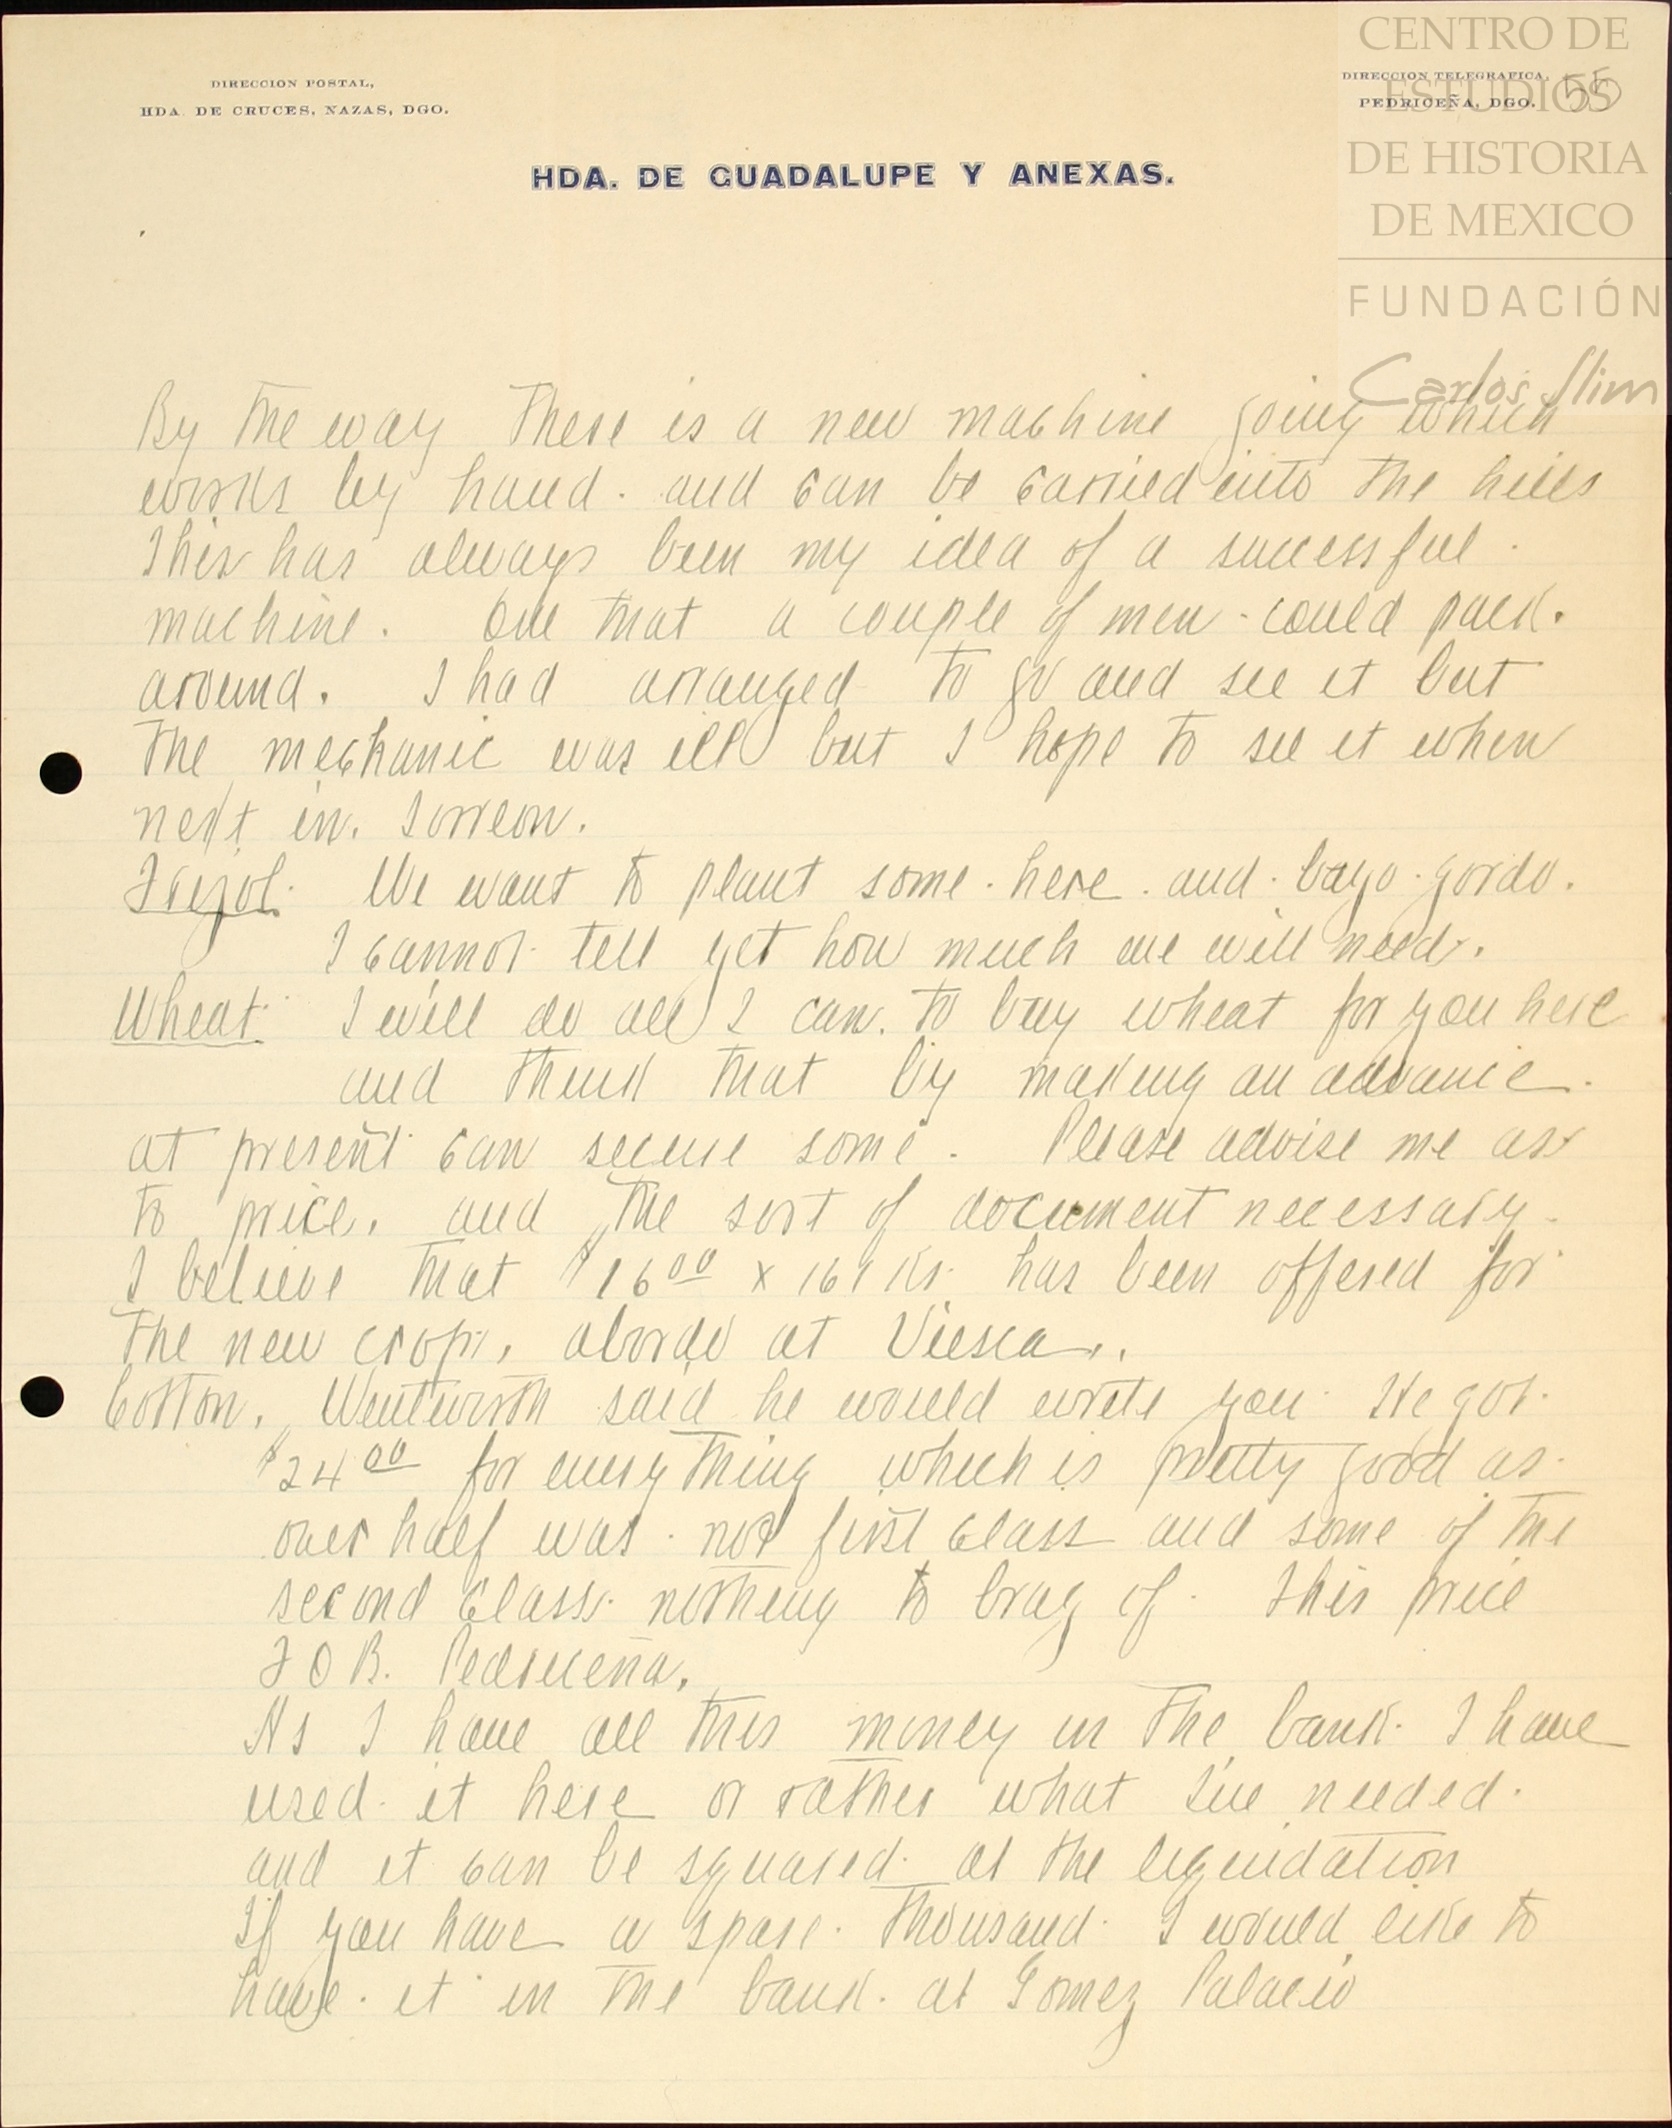 DIRECCION POSTAL,
HDA. DE CRUCES, NAZAS, DGO.
DIRECCION TELEGRAFICA,
PEDRICEÑA, DGO.
55
CENTRO DE
ESTUDIOS
DE HISTORIA
DE MEXICO
FUNDACIÓN
Carlos Slim
HDA. DE GUADALUPE Y ANEXAS.
By the way there is a new machine going which
works by hand. and can be carried into the hills
This has always been my idea of a successful
machine. One that a couple of men could pack.
around. I had arranged to go and see it but
the mechanic was ill but I hope to see it when
next in. Torreon.
Frejol. We want to plant some. here. and. bayo. gordo.
I cannot tell yet how much we will need.
Wheat I will do all I can. to buy wheat for you here
and think that by making an advance.
at present can secure some. Please advise me as
to price. and the sort of document necessary.
I believe that $16 00 x 161 Ks. has been offered for
the new crop, abordo at Viesca.
Cotton. Wentworth said he would write you. He got.
$24 00 for everything which is pretty good as.
over half was. not first class and some of the
second class. nothing to brag of. This price
F O B. Pedriceña.
As I have all this money in the bank. I have
used. it here or rather what I've needed.
and it can be squared. at the liquidation
If you have a spare. thousand. I would like to
have. it in the bank. at Gomez Palacio